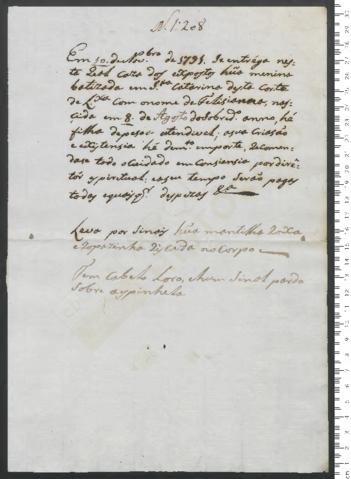 N. 1208
Em 10 de Nov.bro de 1791. Se entrega nes-
te Real Caza dos expostos hũa menina
batizada em S.ta Catarina desta Corte
de Lx.a Com o nome de Felisianna, nas-
çida em 8. de Agosto do Sobred. anno, hé
filha de pesoa atendivel, e sua Criasão
e existensia hé de m.to importe, Recomen-
dase todo o Cuidado em Consiensia por dire-
tos espirituaes, e a seu tempo Serão pagas
todas e quais q.r despezas
Leva por Sinais hũa mantilha
e Ropazinha no Corpo
Tem Cabelo Loro, e hum Sinal pardo
Sobre a espinhela